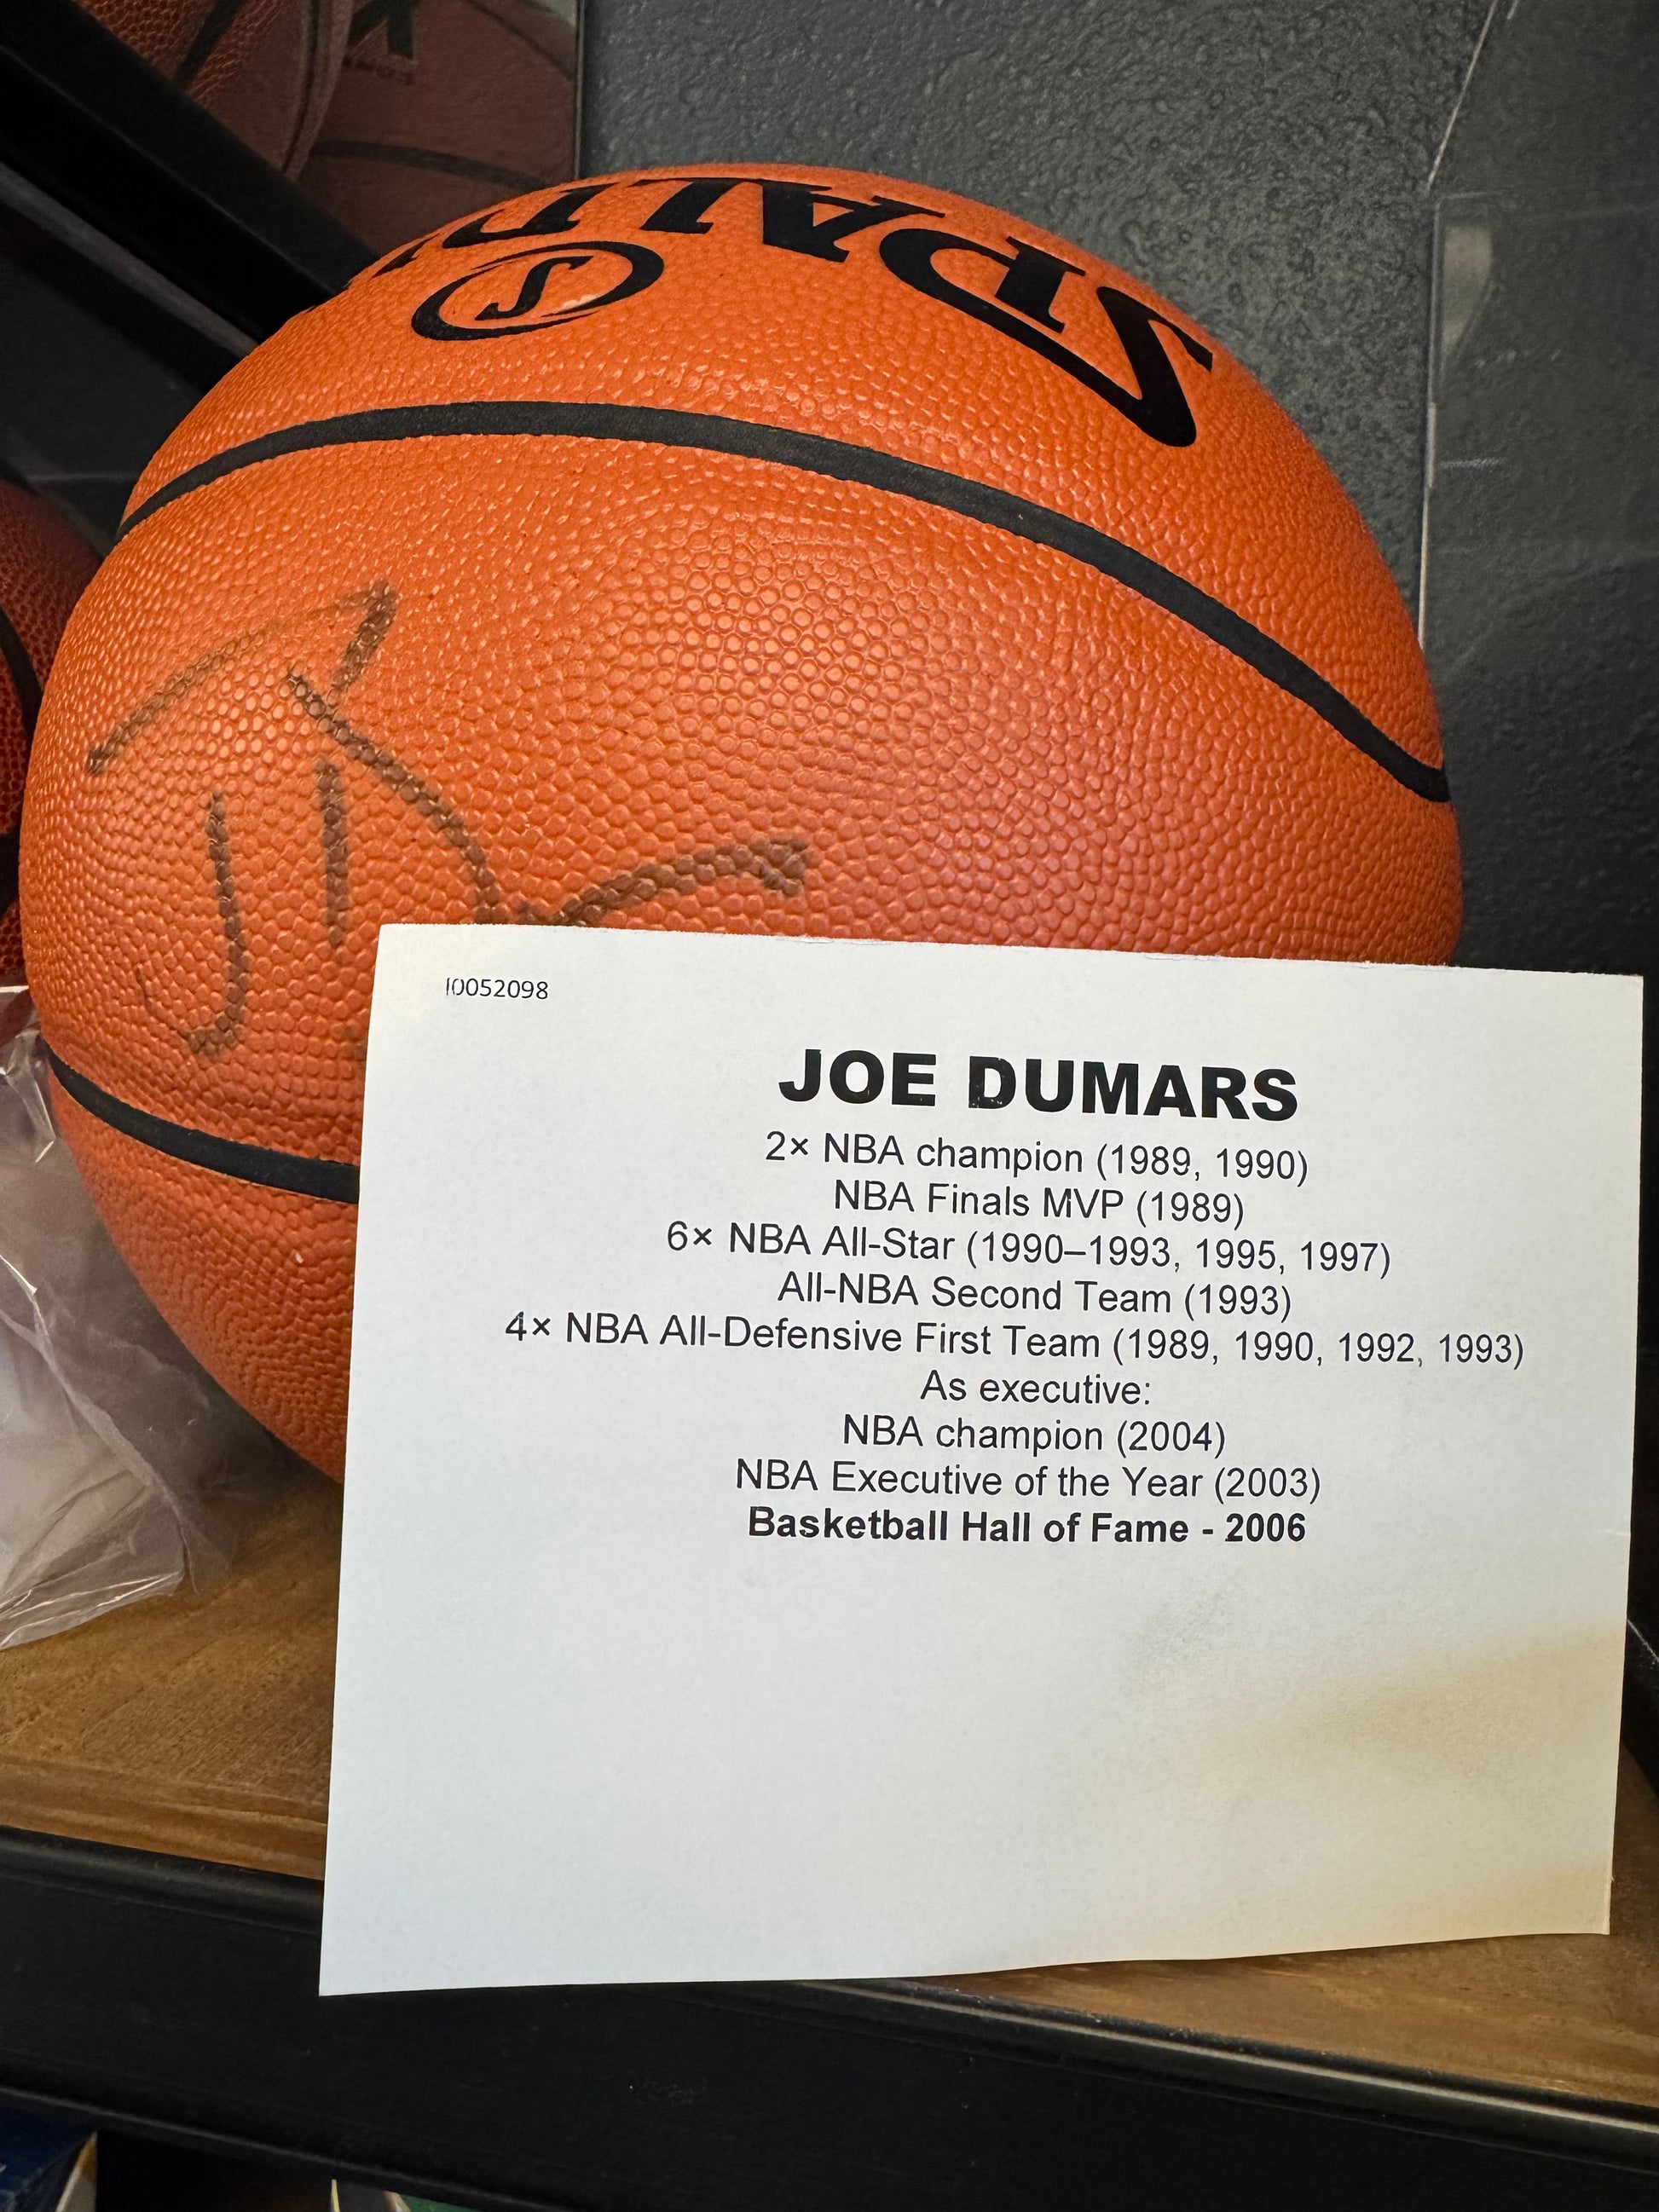 SPALD
S
I0052098
JOE DUMARS
2× NBA champion (1989, 1990)
NBA Finals MVP (1989)
6× NBA All-Star (1990–1993, 1995, 1997)
All-NBA Second Team (1993)
4× NBA All-Defensive First Team (1989, 1990, 1992, 1993)
As executive:
NBA champion (2004)
NBA Executive of the Year (2003)
Basketball Hall of Fame - 2006